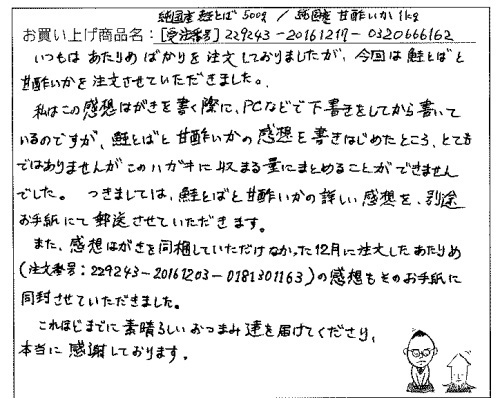 純国産 鮭とば 500g / 純国産 甘酢いか 1kg
お買い上げ商品名：[受注番号] 229243-20161217-0320666162
いつもはあたりめばかりを注文しておりましたが、今回は鮭とばと
甘酢いかを注文させていただきました。
私はこの感想はがきを書く際に、PCなどで下書きをしてから書いて
いるのですが、鮭とばと甘酢いかの感想を書きはじめたところ、とても
ではありませんがこのハガキに収まる量にまとめることができません
でした。 つきましては、鮭とばと甘酢いかの詳しい感想を、別途
お手紙にて郵送させていただきます。
また、感想はがきを同梱していただけなかった12月に注文したあたりめ
(注文番号：229243-20161203-0181301163)の感想もそのお手紙に
同封させていただきました。
これほどまでに素晴らしいおつまみ達を届けてくださり、
本当に感謝しております。